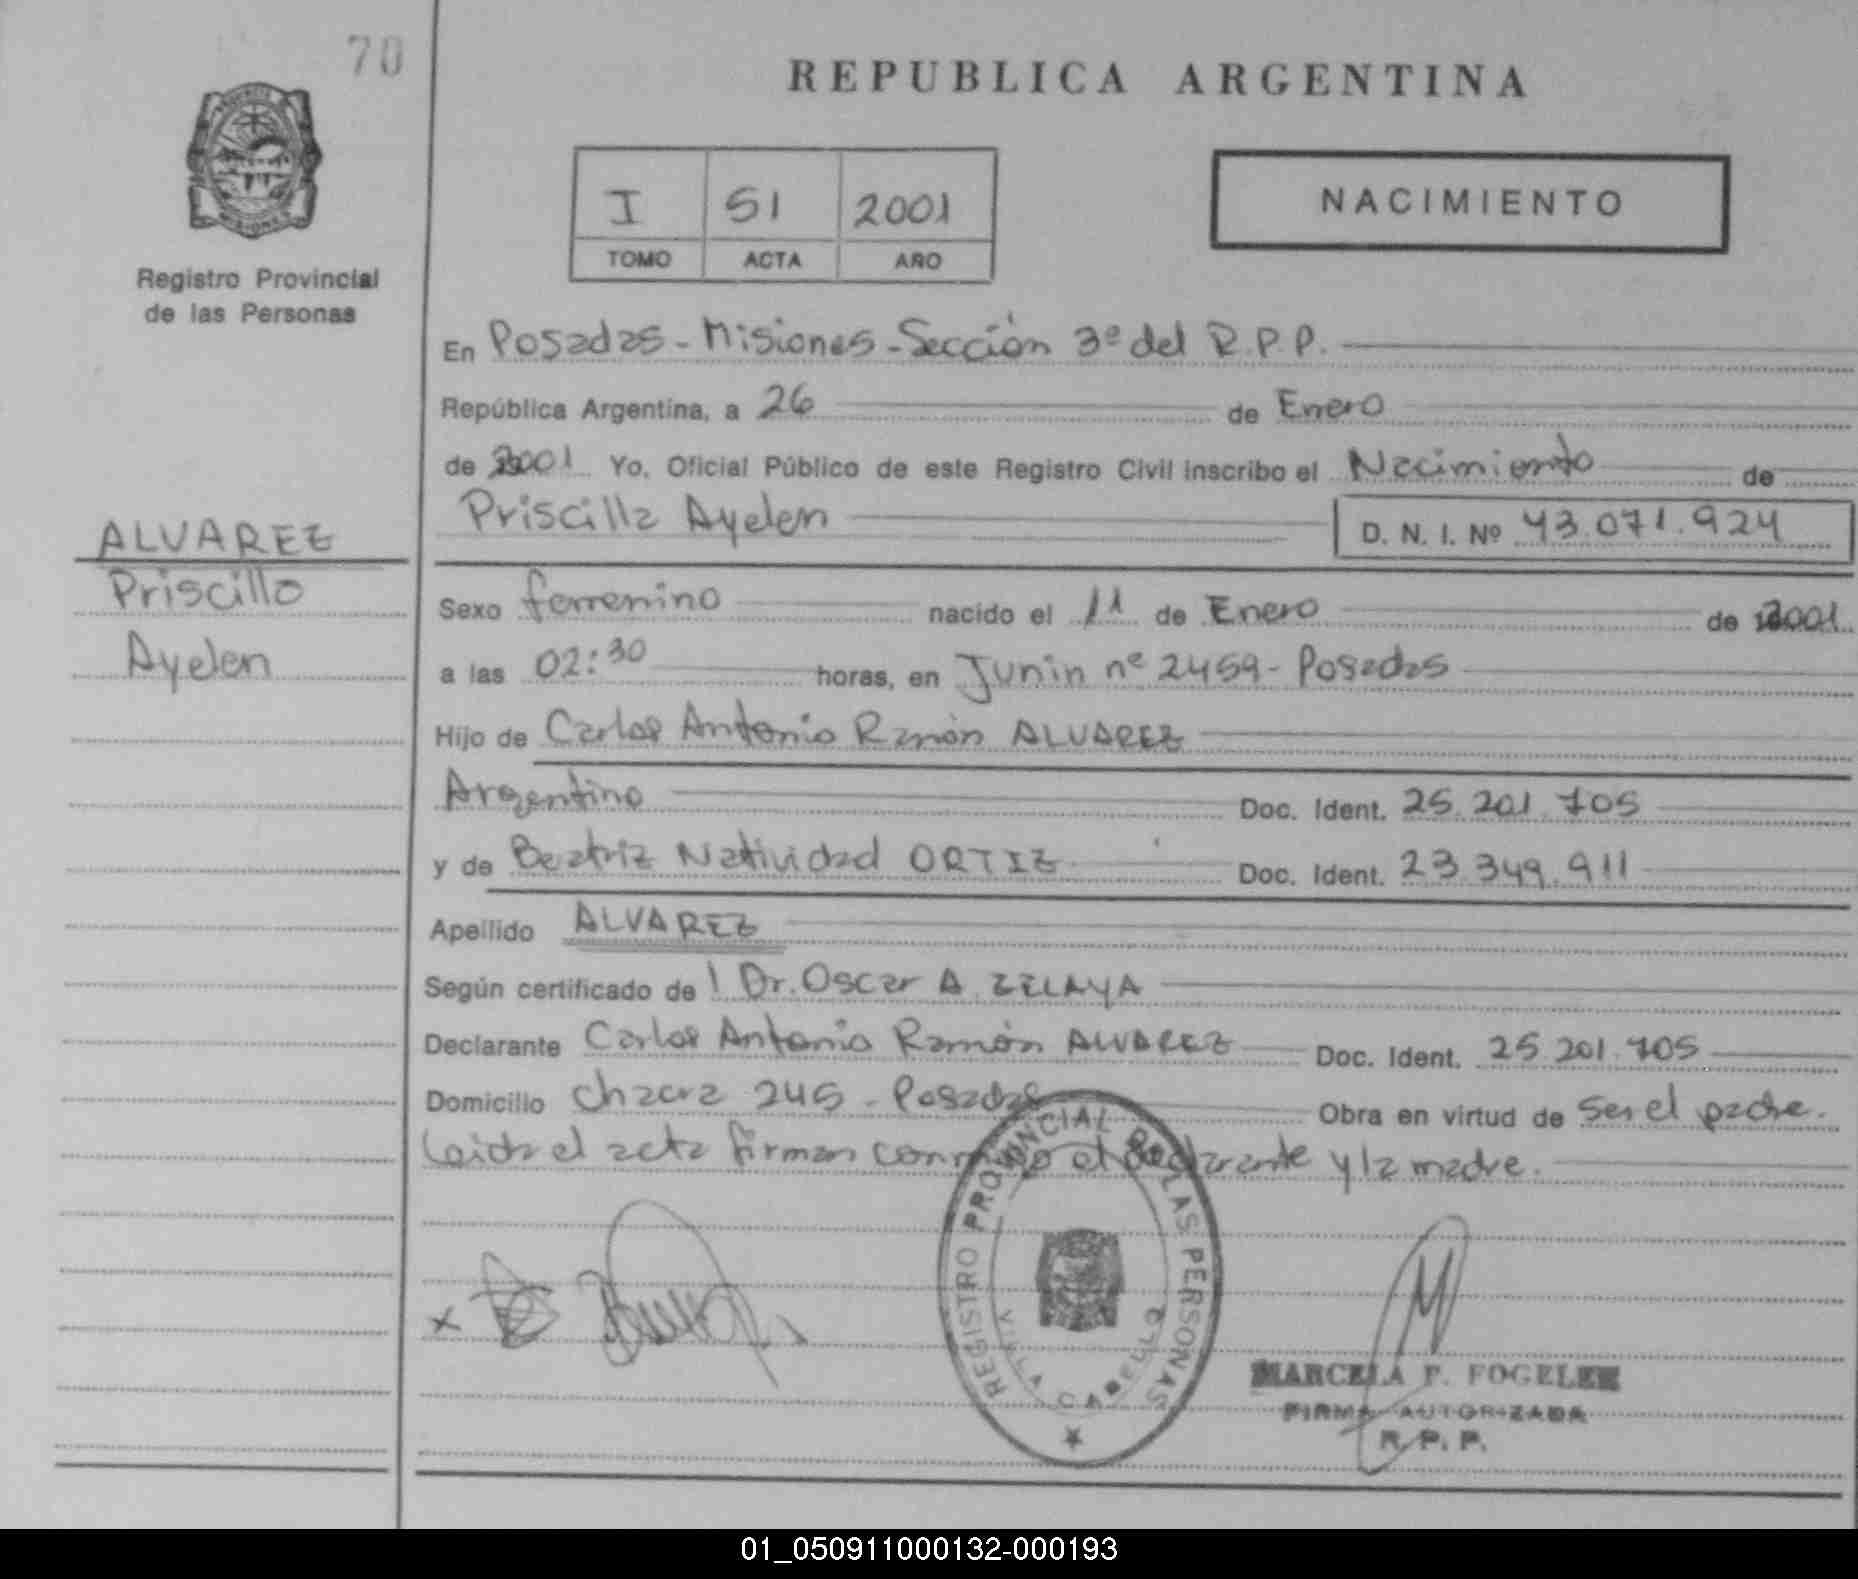 70
REPUBLICA ARGENTINA
I 51 2001
TOMO ACTA AÑO
NACIMIENTO
Registro Provincial
de las Personas
En Posadas - Misiones - Sección 3º del R.P.P.
República Argentina, a 26 de Enero
de 2001 Yo, Oficial Público de este Registro Civil inscribo el Nacimiento de
Priscilla Ayelen D. N. I. Nº 43.071.924
ALVAREZ
Priscilla
Ayelen
Sexo femenino nacido el 11 de Enero de 2001
a las 02:30 horas, en Junin nº 2459 - Posadas
Hijo de Carlos Antonio Ramón ALVAREZ
Argentino Doc. Ident. 25.201.705
y de Beatriz Natividad ORTIZ Doc. Ident. 23.349.911
Apellido ALVAREZ
Según certificado de l Dr. Oscar A. ZELAYA
Declarante Carlos Antonio Ramón ALVAREZ Doc. Ident. 25.201.705
Domicilio Chacra 245 - Posadas Obra en virtud de ser el padre.
Leida el acta firman conmigo el declarante y la madre.
REGISTRO PROVINCIAL DE LAS PERSONAS
VILLA CABELLO
MARCELA F. FOGELER
FIRMA AUTORIZADA
R. P. P.
01_050911000132-000193